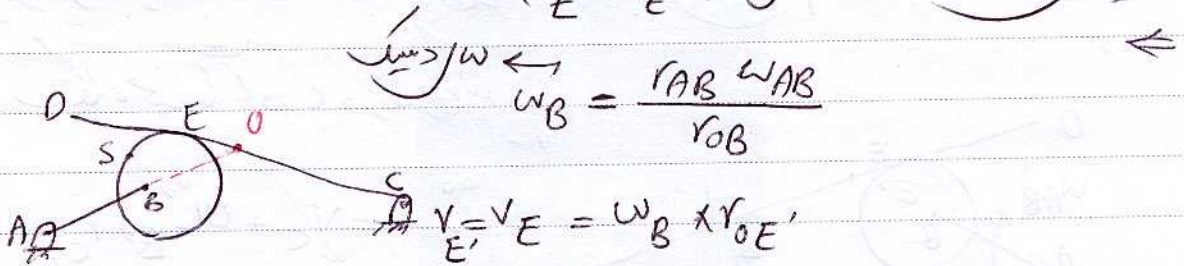 E E
ω دیسک ← ω_B = r_AB ω_AB / r_OB
D E O
S
B
A C
V_E' = V_E = ω_B × r_OE'